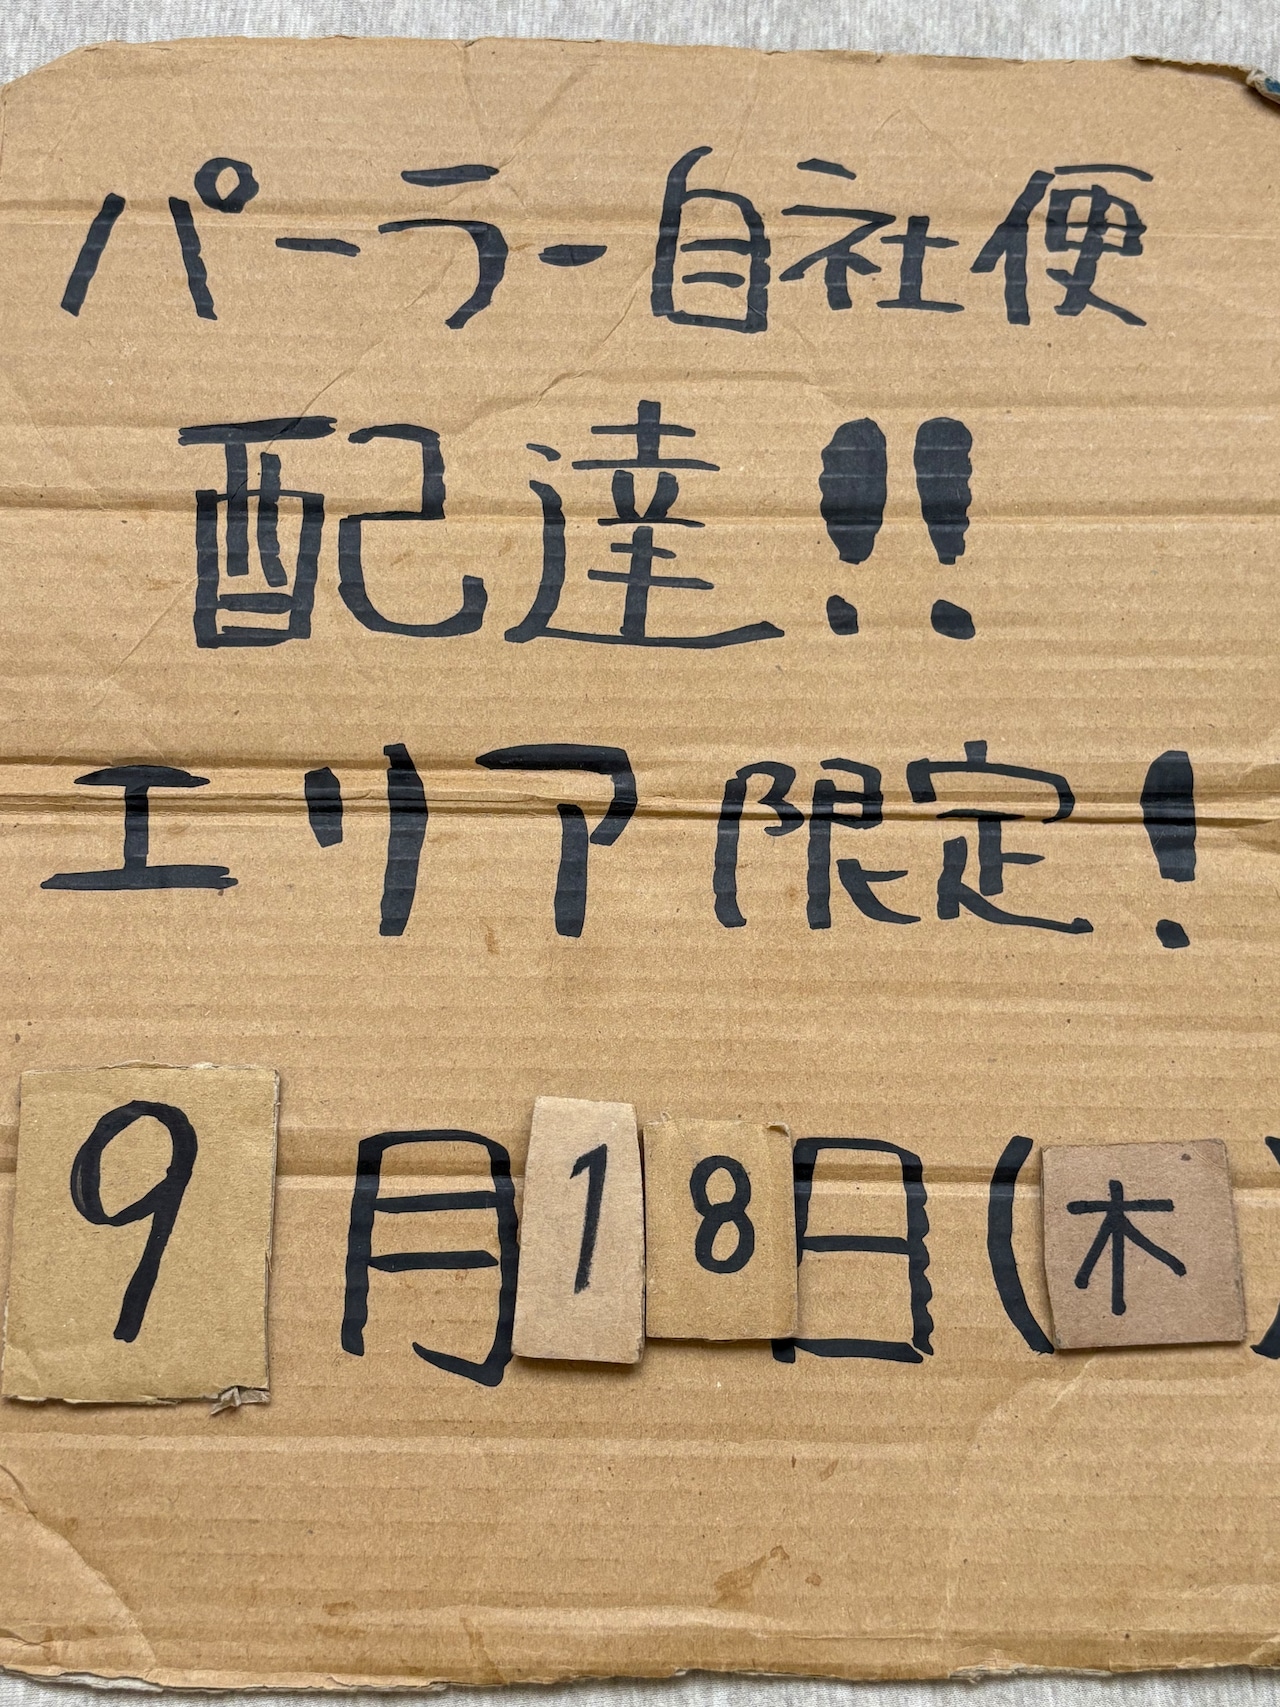 パーラー自社便
配達!!
エリア限定!
9月18日(木)